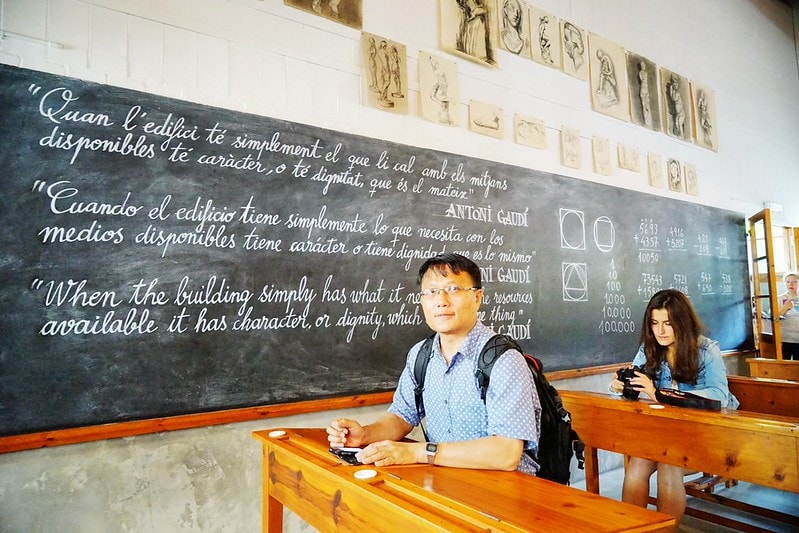 "Quan l'edifici té simplement el que li cal amb els mitjans
disponibles té caràcter, o té dignitat, que és el mateix"
ANTONÍ GAUDÍ
"Cuando el edificio tiene simplemente lo que necesita con los
medios disponibles tiene carácter o tiene dignidad que es lo mismo"
GAUDÍ
"When the building simply has what it resources
available it has character, or dignity, which thing"
GAUDÍ
1
10
100
1.000
10.000
100.000
+4357
10050
73543
5721
547